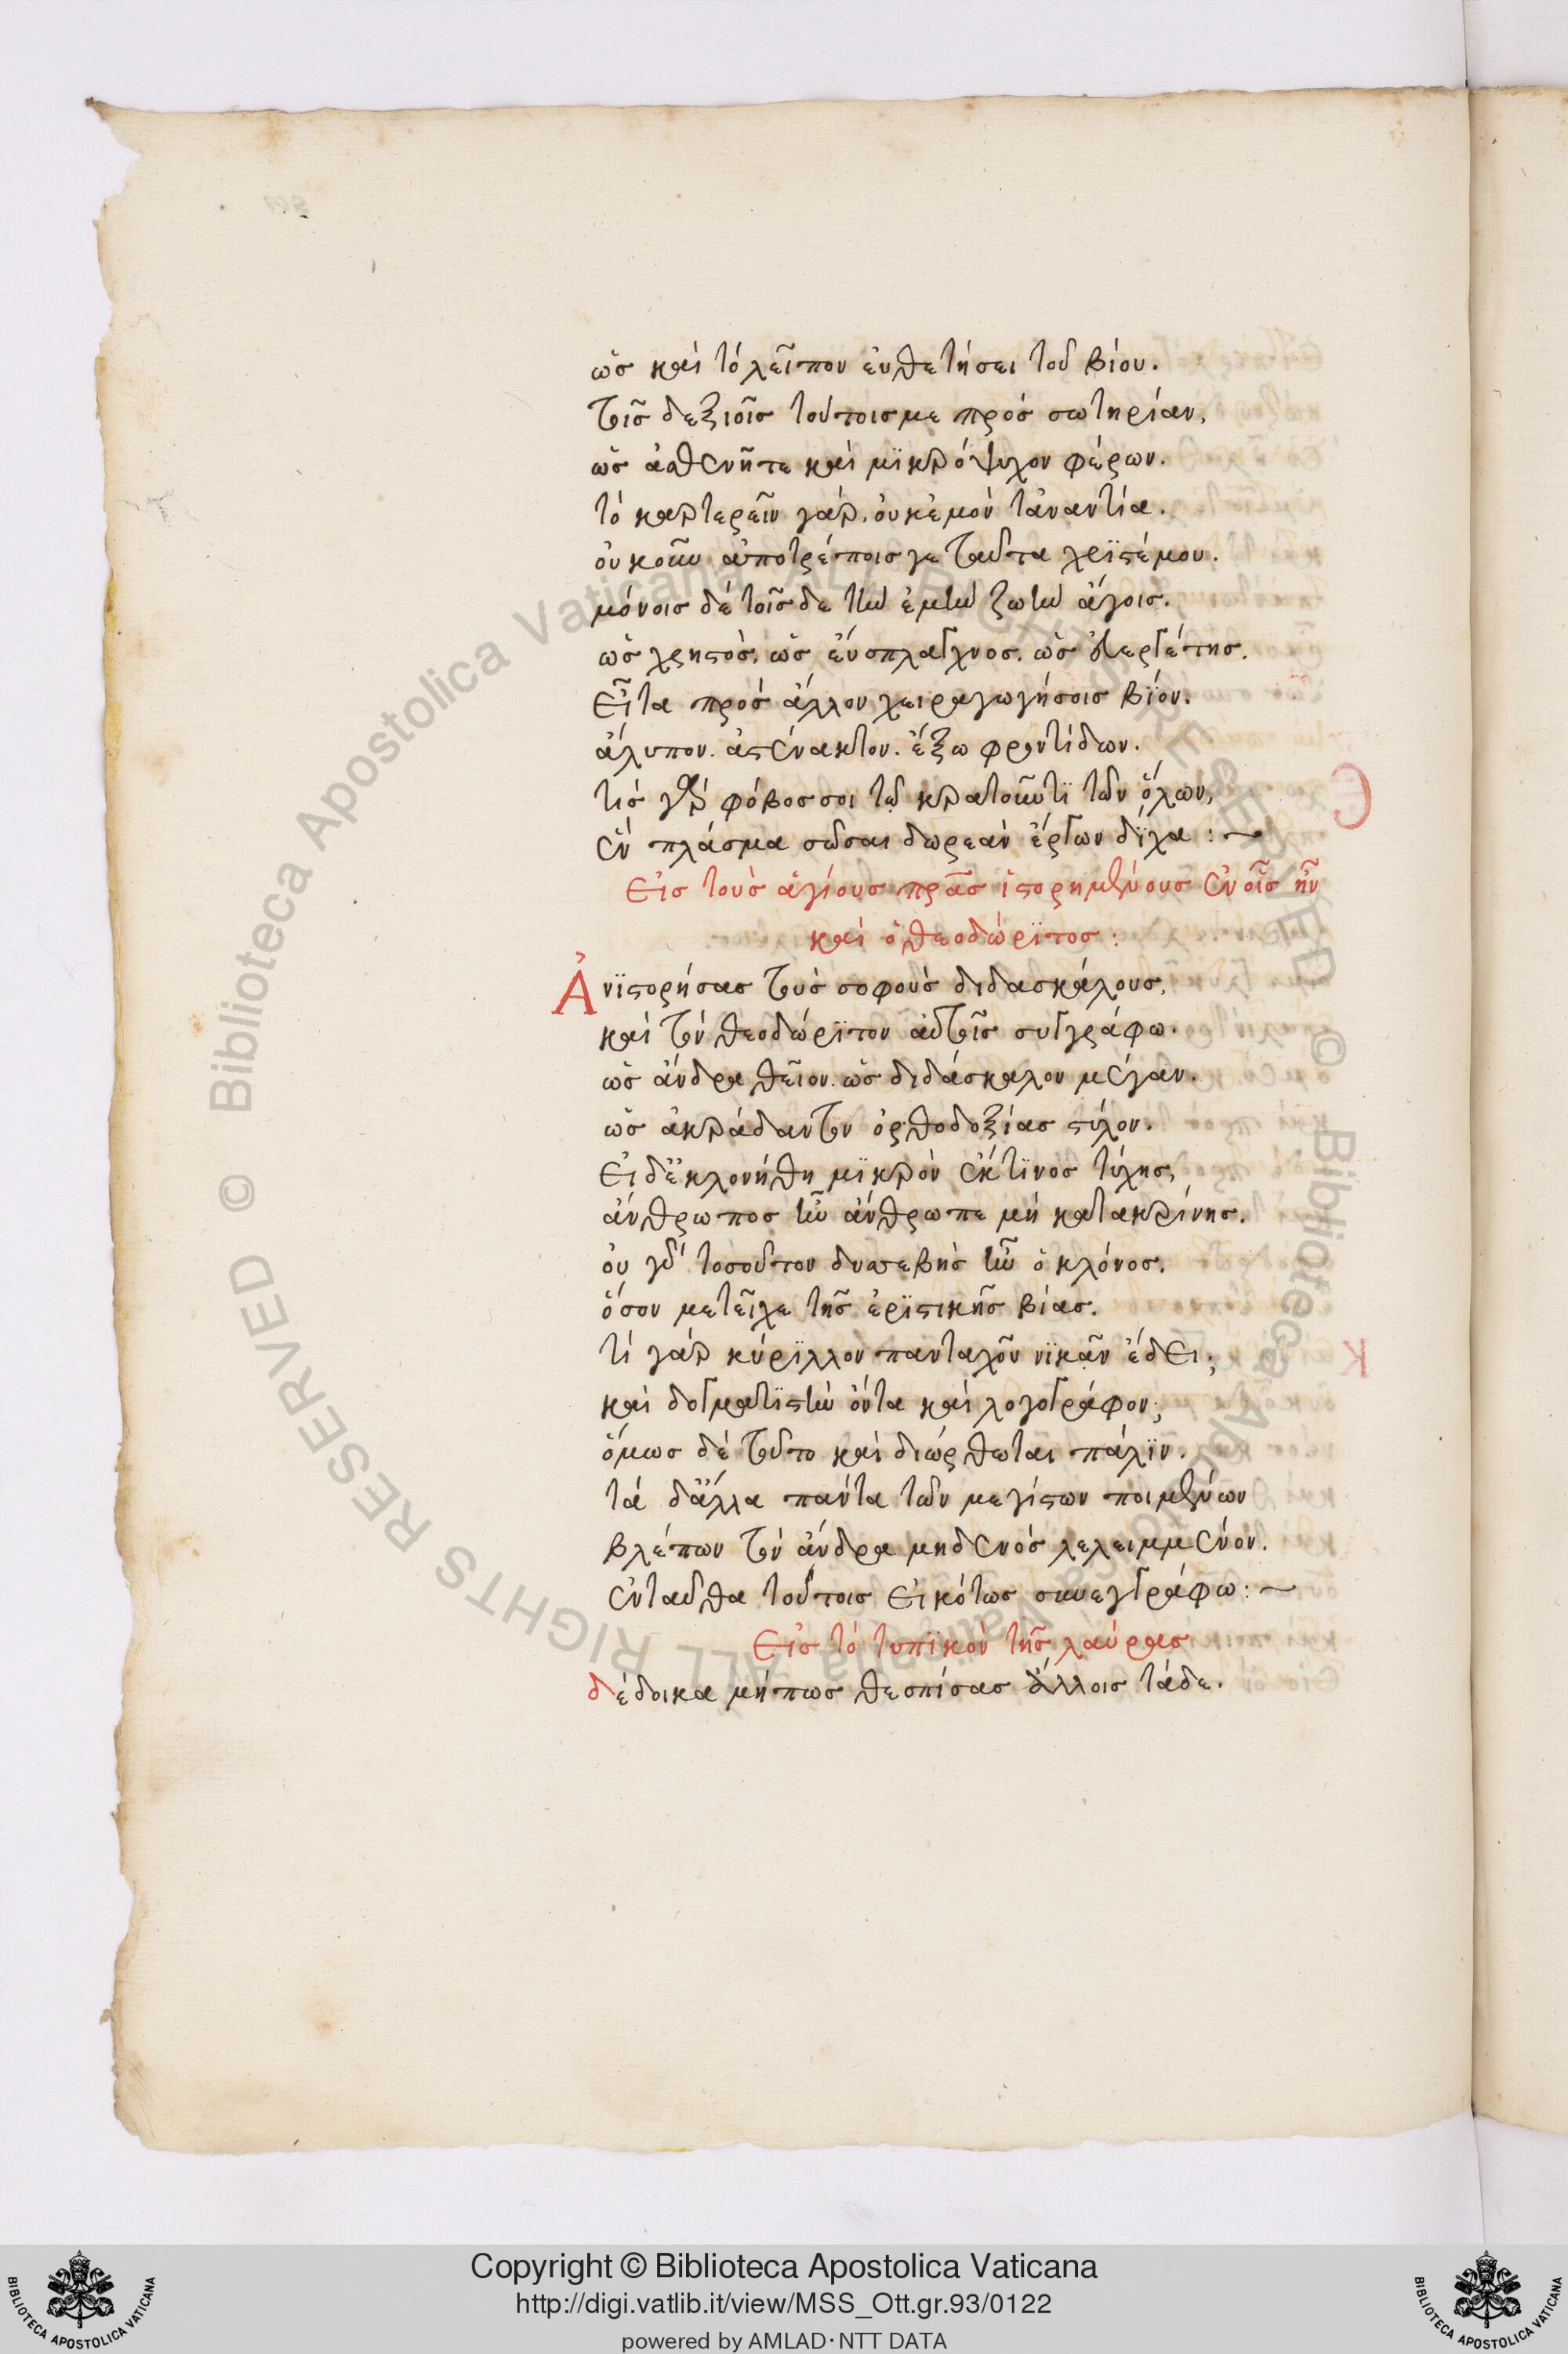 ὡς καὶ τὸ λεῖπον εὐθετήσει τοῦ βίου.
τοῖς δεξιοῖς τούτοις με πρὸς σωτηρίαν,
ὡς ἀσθενῆ τε καὶ μϊκρόψυχον φέρων.
τὸ καρτερεῖν γάρ, οὐκ ἐμὸν τἀναντία.
οὐκοῦν ἀποτρέποις γε ταῦτα χρϊστέ μου.
μόνοις δὲ τοῖσδε τὴν ἐμὴν ζωὴν ἄγοις.
ὡς χρηστός, ὡς εὔσπλαγχνος, ὡς εὐεργέτης.
Εἶτα πρὸς ἄλλον χειραγωγήσοις βϊόν.
ἄλυπον. ἀστένακτον. ἔξω φροντίδων.
τίς γὰρ φόβος σοι τῷ κρατοῦντϊ τῶν ὅλων,
ἓν πλάσμα σῶσαι δωρεὰν ἔργων δΐχα : ~
Εἰς τοὺς ἁγίους πρᾶς ἱστορημένους ἐν οἷς ἦν
καὶ ὁ θεοδώρϊτος :
Ἀνϊστορήσας τοὺς σοφοὺς διδασκάλους,
καὶ τὸν θεοδώρϊτον αὐτοῖς συγγράφω.
ὡς ἄνδρα θεῖον. ὡς διδάσκαλον μέγαν.
ὡς ἀκράδαντον ὀρθοδοξίας στύλον.
Εἰ δ' ἐκλονήθη μϊκρὸν ἔκ τϊνος τύχης,
ἄνθρωπος ἦν ἄνθρωπε μὴ κατακρίνης.
οὐ γὰρ τοσοῦτον δυσσεβὴς ἦν ὁ κλόνος.
ὅσον μετεῖχε τῆς ἐρϊστικῆς βίας.
τί γὰρ κύρϊλλον πανταχοῦ νϊκᾶν ἔδει;
καὶ δογματϊστὴν ὄντα καὶ λογογράφον;
ὅμως δὲ τοῦτο καὶ διώρθωται πάλϊν.
τὰ δ' ἄλλα πάντα τῶν μεγίστων ποιμένων
βλέπων τὸν ἄνδρα μηδενὸς λελειμμένον.
ἐνταῦθα τούτοις εἰκότως συνεγγράφω : ~
Εἰς τὸ τυπϊκὸν τῆς λαύρας
δέδοικα μήπως θεσπίσας ἄλλοις τάδε.
Copyright © Biblioteca Apostolica Vaticana
http://digi.vatlib.it/view/MSS_Ott.gr.93/0122
powered by AMLAD·NTT DATA